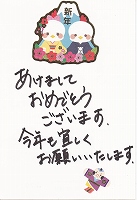 新年
あけまして
おめでとう
ございます.
今年も宜しく
お願いいたします.